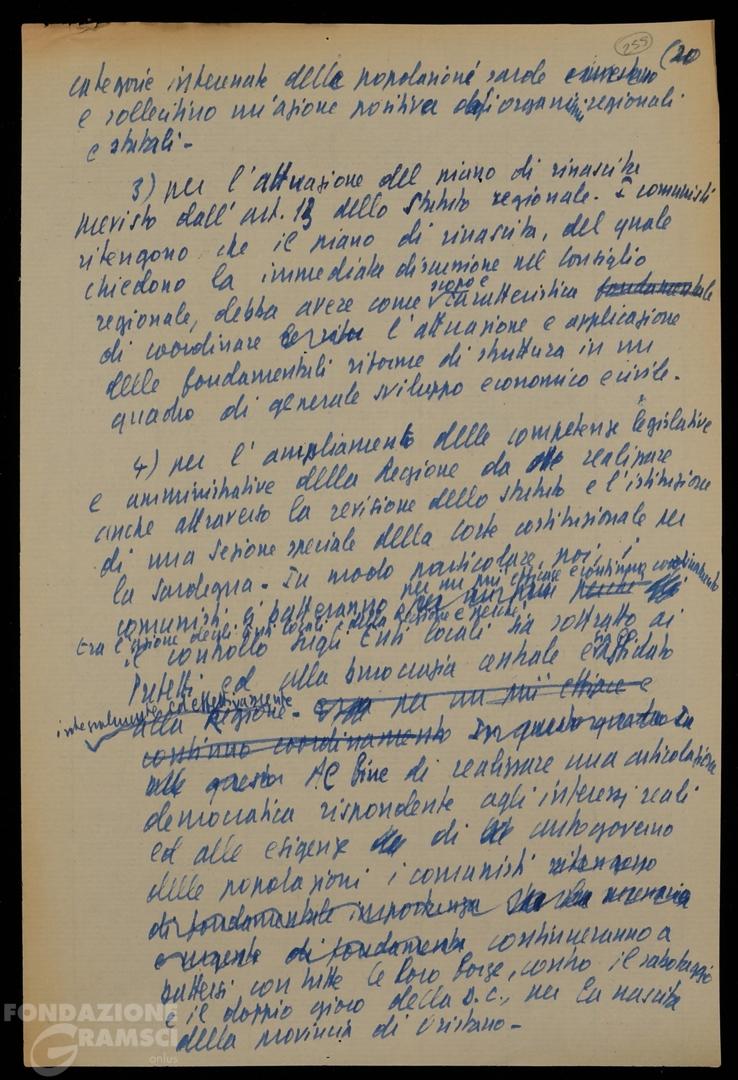 255
(20
categorie interessate della popolazione sarda
e sollecitino un'azione positiva degli organismi regionali
e statali -
3) per l'attuazione del piano di rinascita
previsto dall'art. 13 dello Statuto regionale. I comunisti
ritengono che il piano di rinascita, del quale
chiedono la immediata discussione nel Consiglio
regionale, debba avere come scopo e caratteristica fondamentale
di coordinare l'attuazione e applicazione
delle fondamentali riforme di struttura in un
quadro di generale sviluppo economico e civile -
4) per l'ampliamento delle competenze legislative
e amministrative della Regione da realizzare
anche attraverso la revisione dello statuto e l'istituzione
di una sezione speciale della corte costituzionale per
la Sardegna - In modo particolare, noi
per un più efficace e continuo coordinamento
comunisti ci batteremo perché
tra l'azione degli Enti locali e della Regione e perché
il controllo sugli Enti locali sia sottratto ai
Prefetti ed alla burocrazia centrale e sia affidato
integralmente ed effettivamente
alla Regione - per un più efficace e
continuo coordinamento In questo quadro
Al fine di realizzare una articolazione
democratica rispondente agli interessi reali
ed alle esigenze di autogoverno
delle popolazioni i comunisti ritengono
di fondamentale importanza
e urgente di fondamenta continueranno a
battersi con tutte le loro forze, contro il sabotaggio
e il doppio gioco della D.C., per la nascita
della provincia di Oristano -
FONDAZIONE
GRAMSCI
onlus